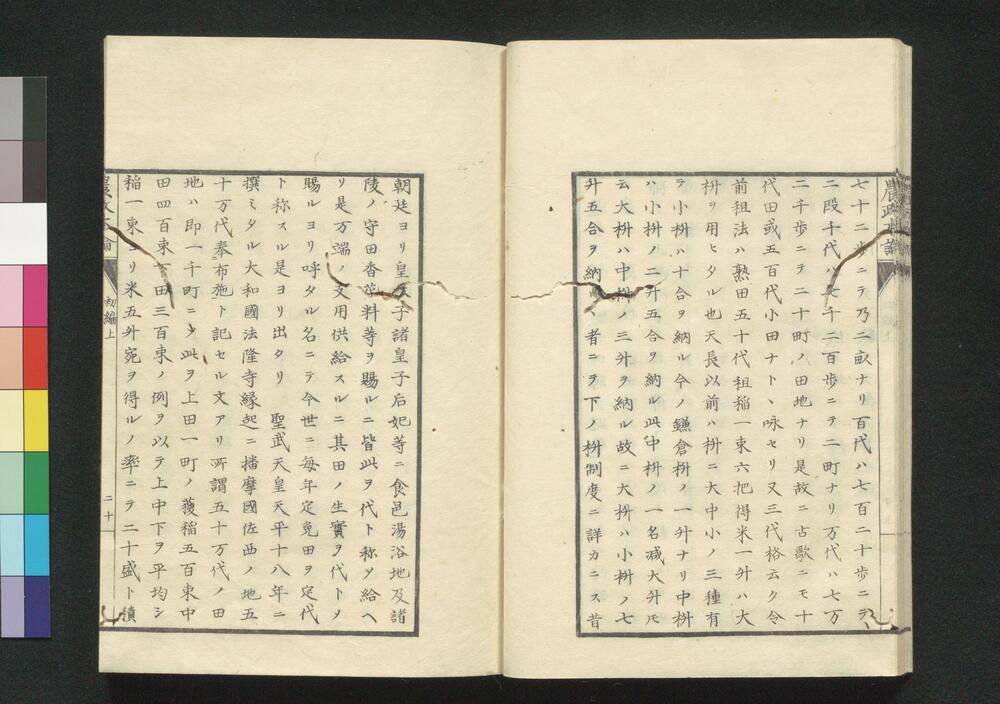 農政座論
七十二歩ニテ乃二畝ナリ百代ハ七百二十歩ニテ
二段千代ハ七千二百歩ニテ二町ナリ万代ハ七万
二千歩ニテ二十町ノ田地ナリ是故ニ古歌ニモ十
代田或五百代小田ナト丶咏セリ又三代格云ク令
前租法ハ熟田五十代租稲一束六把得米一升ハ大
枡ヲ用ヒタル也天長以前ハ枡ニ大中小ノ三種有
テ小枡ハ十合ヲ納ル今ノ鎌倉枡ノ一升ナリ中枡
ハ小枡ノ二升五合ヲ納ル此中枡ノ一名減大升トモ
云大枡ハ中枡ノ三升ヲ納ル故ニ大枡ハ小枡ノ七
升五合ヲ納ル者ニテ下ノ枡制度ニ詳カニス昔
朝廷ヨリ皇太子諸皇子后妃等ニ食邑湯沐地及諸
陵ノ守田香花料等ヲ賜ルニ皆此ヲ代ト称シ給ヘ
リ是万端ノ支用供給スルニ其田ノ生實ヲ代トシ
賜ルヨリ呼タル名ニテ今世ニ毎年定免田ヲ定代
ト称スル是ヨリ出タリ 聖武天皇天平十八年ニ
撰ミタル大和國法隆寺縁起ニ播摩國佐西ノ地五
十万代奉布施ト記セル文アリ所謂五十万代ノ田
地ハ即一千町ニシ此ヲ上田一町ノ穫稲五百束中
田四百束下田三百束ノ例ヲ以テ上中下ヲ平均シ
稲一束ヨリ米五升宛ヲ得ルノ率ニテ二十盛ト積
初編上
二十